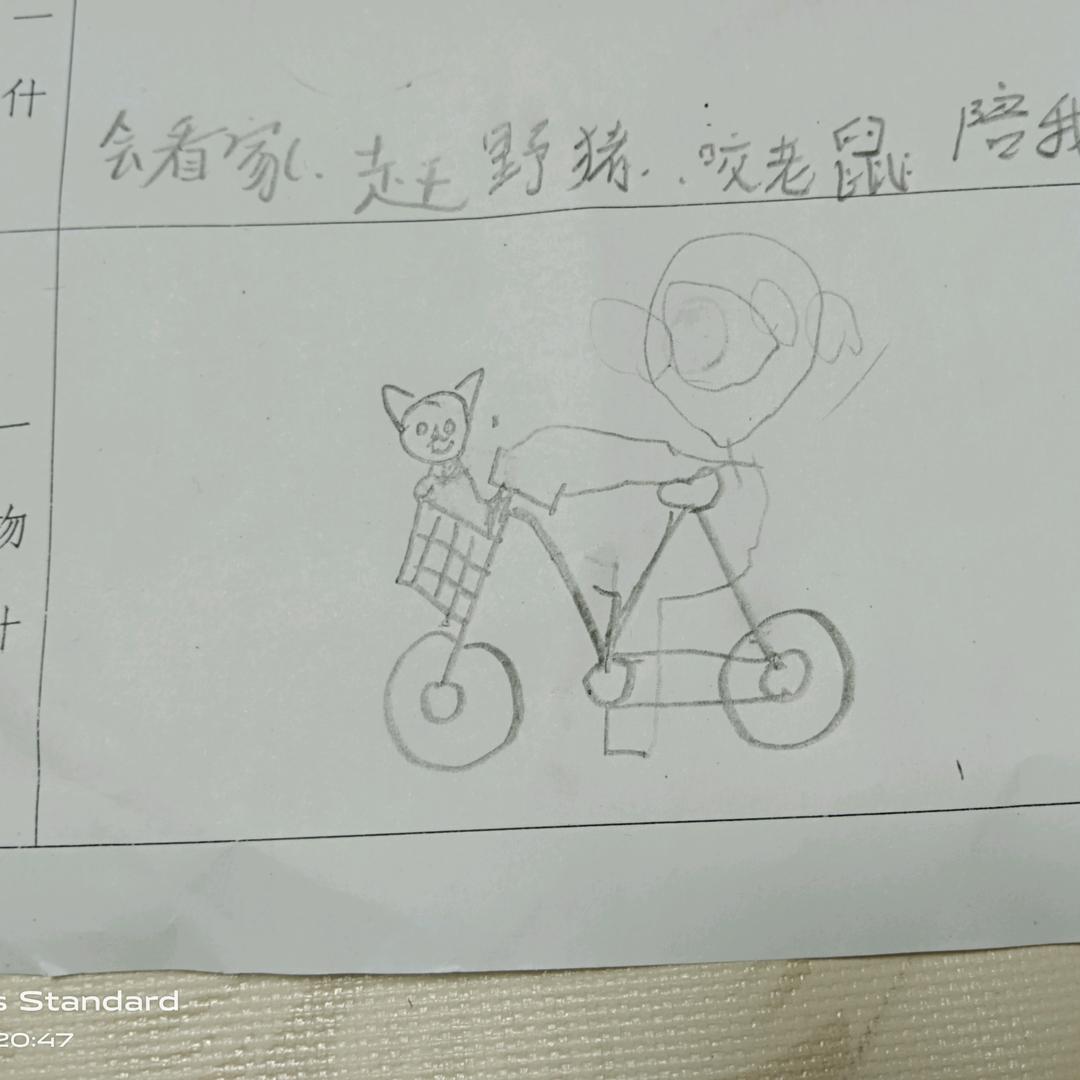 一
什
会看家、赶野猪、咬老鼠 陪我
一
物
什
s Standard
20:47